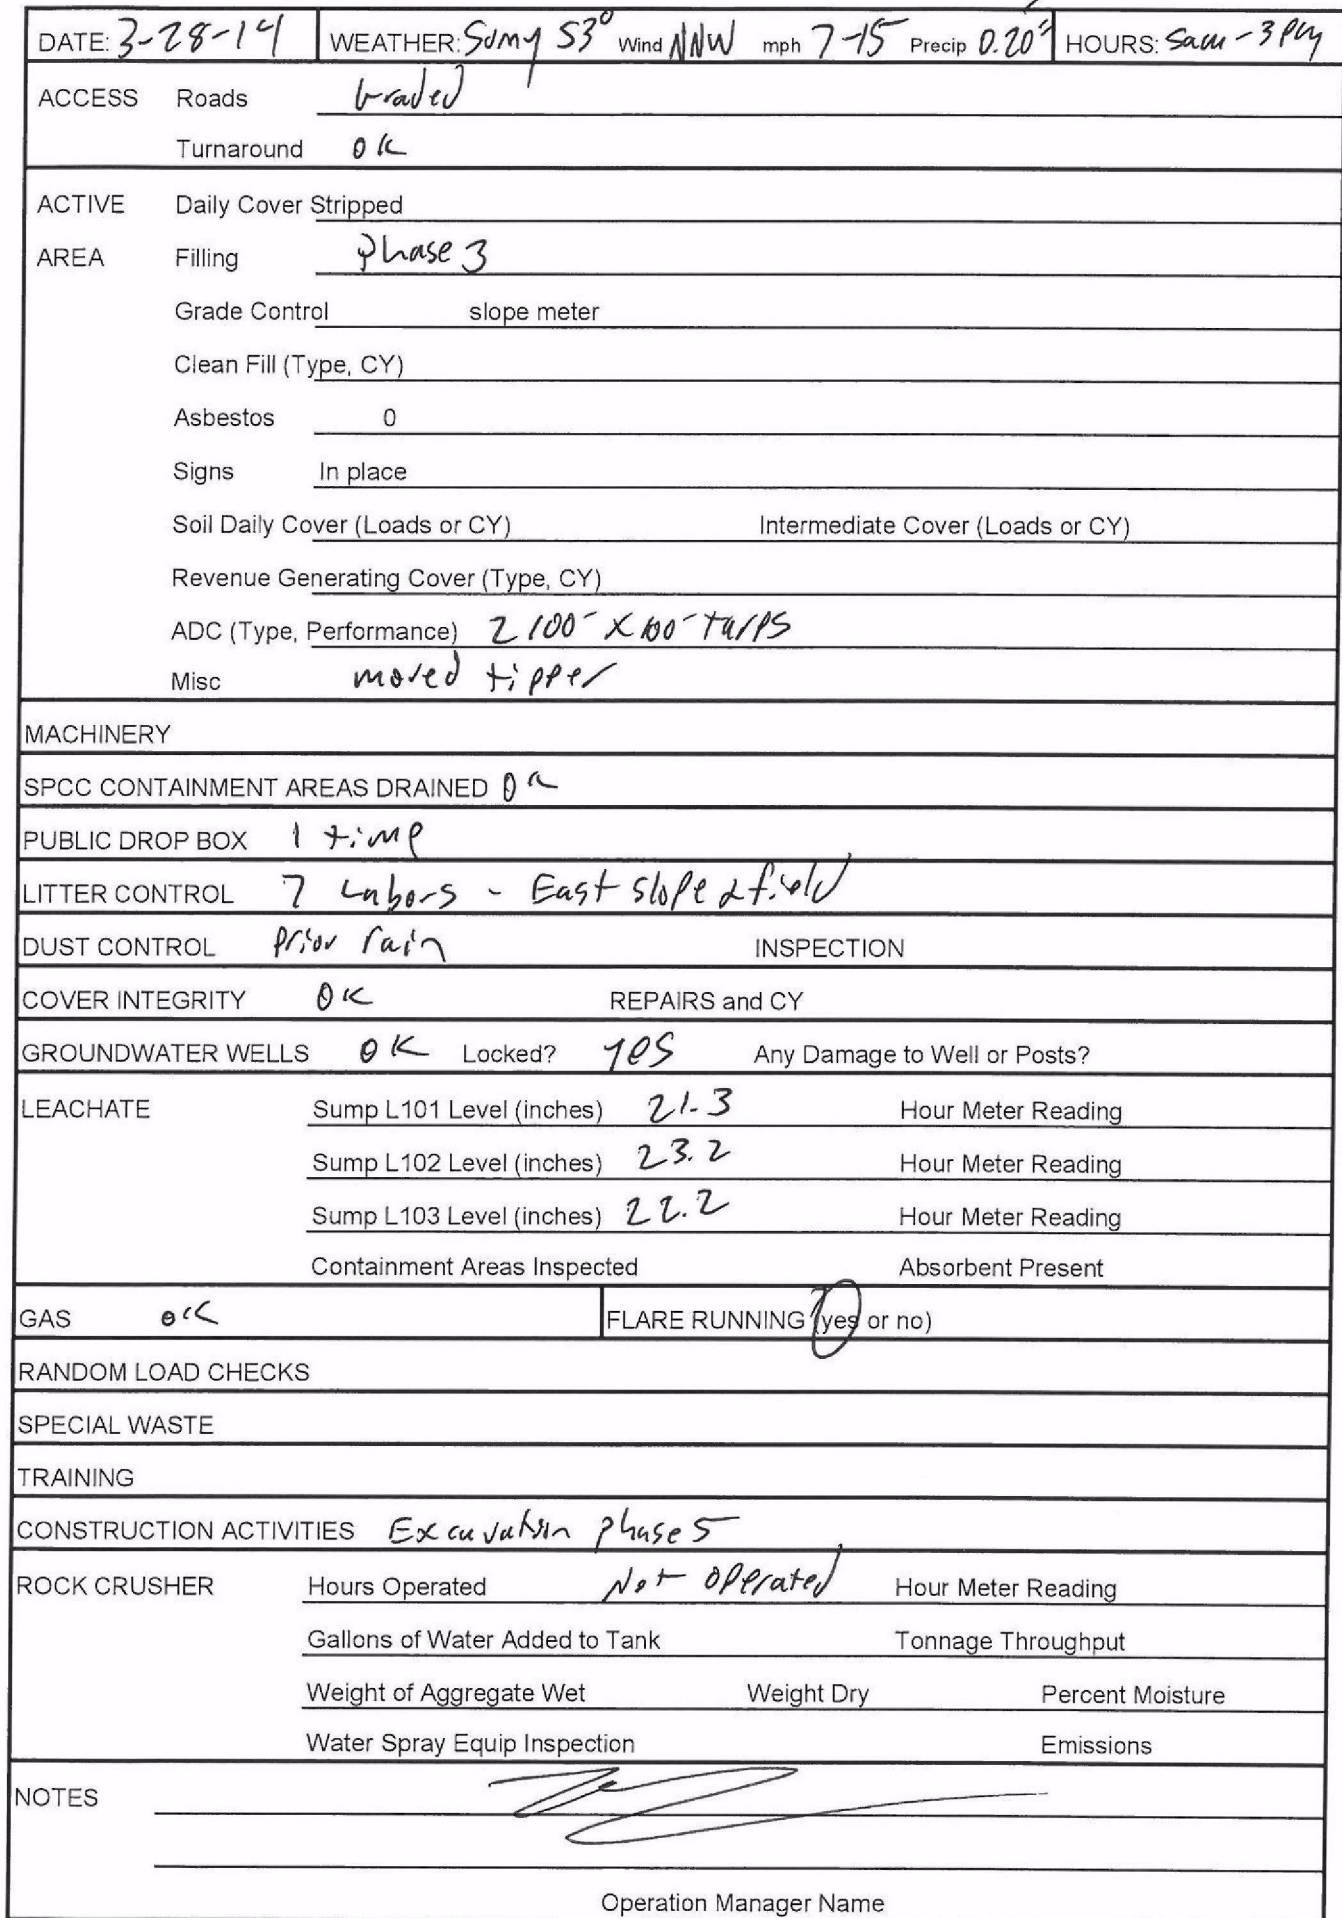 DATE: 3-28-14 WEATHER: Sunny 53° Wind NNW mph 7-15 Precip 0.20" HOURS: 5am - 3pm
ACCESS Roads Graded
Turnaround OK
ACTIVE Daily Cover Stripped
AREA Filling Phase 3
Grade Control slope meter
Clean Fill (Type, CY)
Asbestos 0
Signs In place
Soil Daily Cover (Loads or CY) Intermediate Cover (Loads or CY)
Revenue Generating Cover (Type, CY)
ADC (Type, Performance) 2 100' X 100' tarps
Misc moved tipper
MACHINERY
SPCC CONTAINMENT AREAS DRAINED OK
PUBLIC DROP BOX 1 time
LITTER CONTROL 7 Labors - East slope & field
DUST CONTROL Prior rain INSPECTION
COVER INTEGRITY OK REPAIRS and CY
GROUNDWATER WELLS OK Locked? yes Any Damage to Well or Posts?
LEACHATE Sump L101 Level (inches) 21.3 Hour Meter Reading
Sump L102 Level (inches) 23.2 Hour Meter Reading
Sump L103 Level (inches) 22.2 Hour Meter Reading
Containment Areas Inspected Absorbent Present
GAS OK FLARE RUNNING (yes or no)
RANDOM LOAD CHECKS
SPECIAL WASTE
TRAINING
CONSTRUCTION ACTIVITIES Excavation phase 5
ROCK CRUSHER Hours Operated Not Operated Hour Meter Reading
Gallons of Water Added to Tank Tonnage Throughput
Weight of Aggregate Wet Weight Dry Percent Moisture
Water Spray Equip Inspection Emissions
NOTES
Operation Manager Name